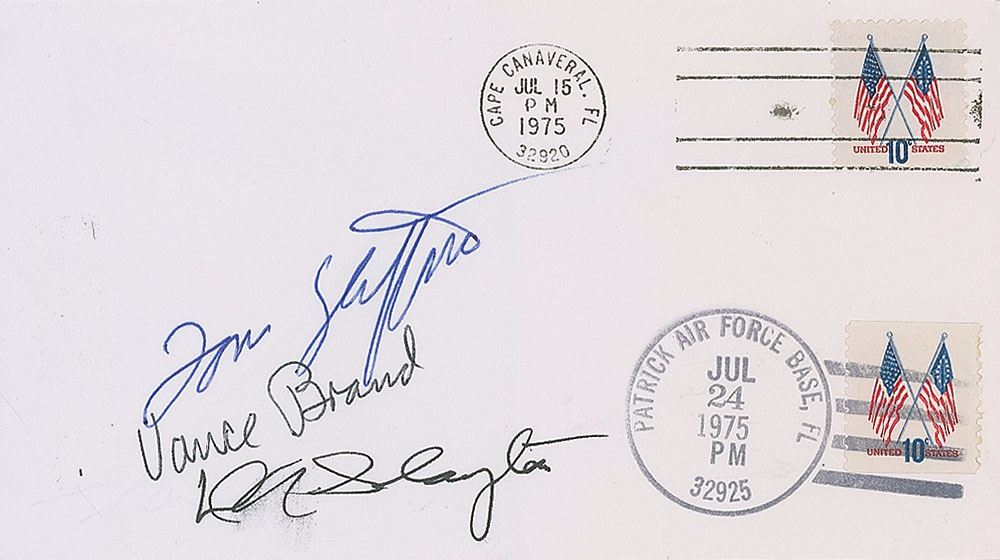 CAPE CANAVERAL, FL
JUL 15
PM
1975
32920
UNITED 10c STATES
Tom Stafford
Vance Brand
D K Slayton
PATRICK AIR FORCE BASE, FL
JUL
24
1975
PM
32925
UNITED 10c STATES